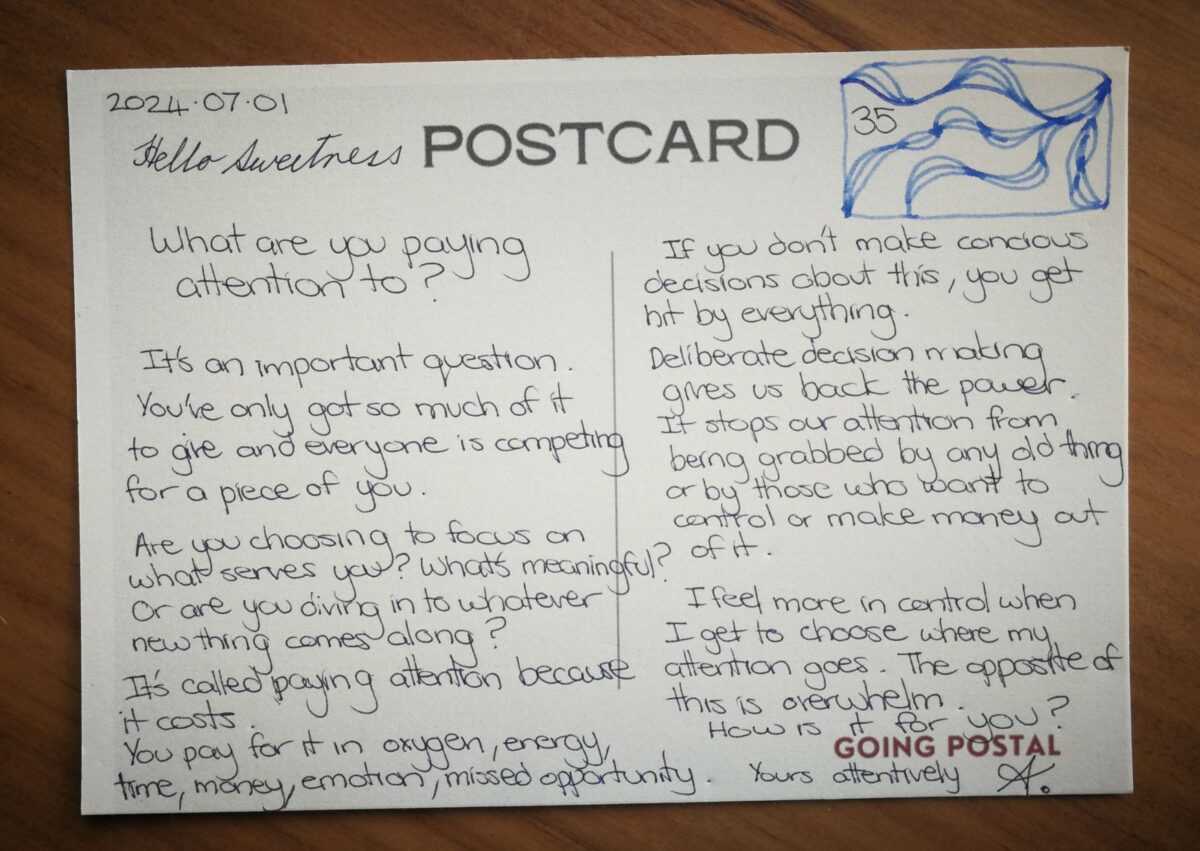 2024·07·01
Hello Sweetness
POSTCARD
35
What are you paying
attention to?
It's an important question.
You've only got so much of it
to give and everyone is competing
for a piece of you.
Are you choosing to focus on
what serves you? What's meaningful?
Or are you diving in to whatever
new thing comes along?
It's called paying attention because
it costs.
You pay for it in oxygen, energy,
time, money, emotion, missed opportunity.
If you don't make concious
decisions about this, you get
hit by everything.
Deliberate decision making
gives us back the power.
It stops our attention from
being grabbed by any old thing
or by those who want to
control or make money out
of it.
I feel more in control when
I get to choose where my
attention goes. The opposite of
this is overwhelm.
How is it for you?
GOING POSTAL
Yours attentively A.